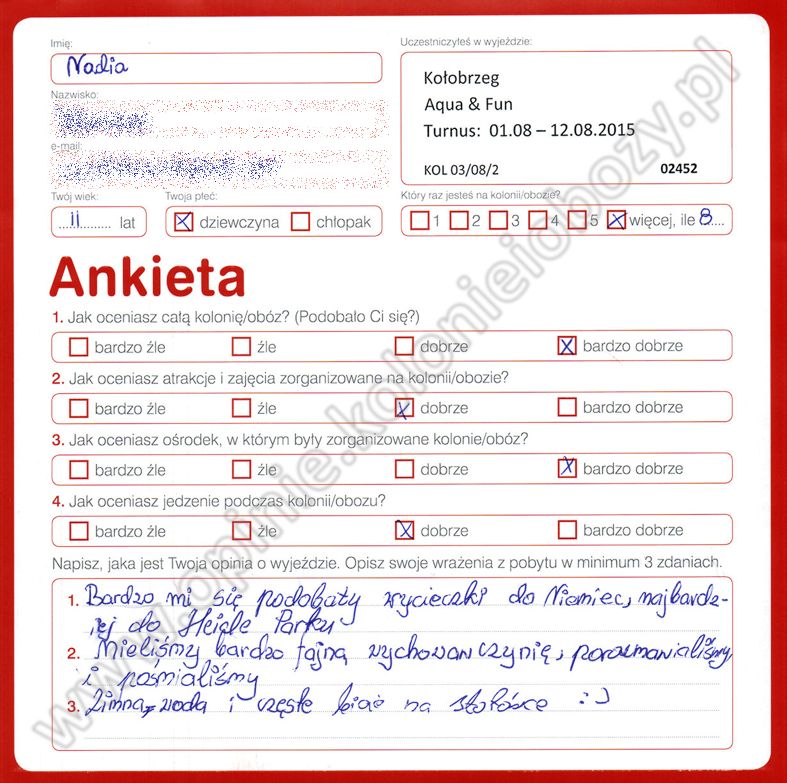 Imię:
Nadia
Uczestniczyłeś w wyjeździe:
Kołobrzeg
Aqua & Fun
Turnus: 01.08 – 12.08.2015
KOL 03/08/2 02452
Nazwisko:
e-mail:
Twój wiek:
11 lat
Twoja płeć:
dziewczyna chłopak
Który raz jesteś na kolonii/obozie?
1 2 3 4 5 więcej, ile 8
Ankieta
1. Jak oceniasz całą kolonię/obóz? (Podobało Ci się?)
bardzo źle źle dobrze bardzo dobrze
2. Jak oceniasz atrakcje i zajęcia zorganizowane na kolonii/obozie?
bardzo źle źle dobrze bardzo dobrze
3. Jak oceniasz ośrodek, w którym były zorganizowane kolonie/obóz?
bardzo źle źle dobrze bardzo dobrze
4. Jak oceniasz jedzenie podczas kolonii/obozu?
bardzo źle źle dobrze bardzo dobrze
Napisz, jaka jest Twoja opinia o wyjeździe. Opisz swoje wrażenia z pobytu w minimum 3 zdaniach.
1. Bardzo mi się podobały wycieczki do Niemiec, najbardz-
iej do Heide Parku
2. Mieliśmy bardzo fajną wychowawczynię,
i pośmialiśmy
3. Zimna woda i częste na stołówce :-)
www.opinie.kolonieiobozy.pl